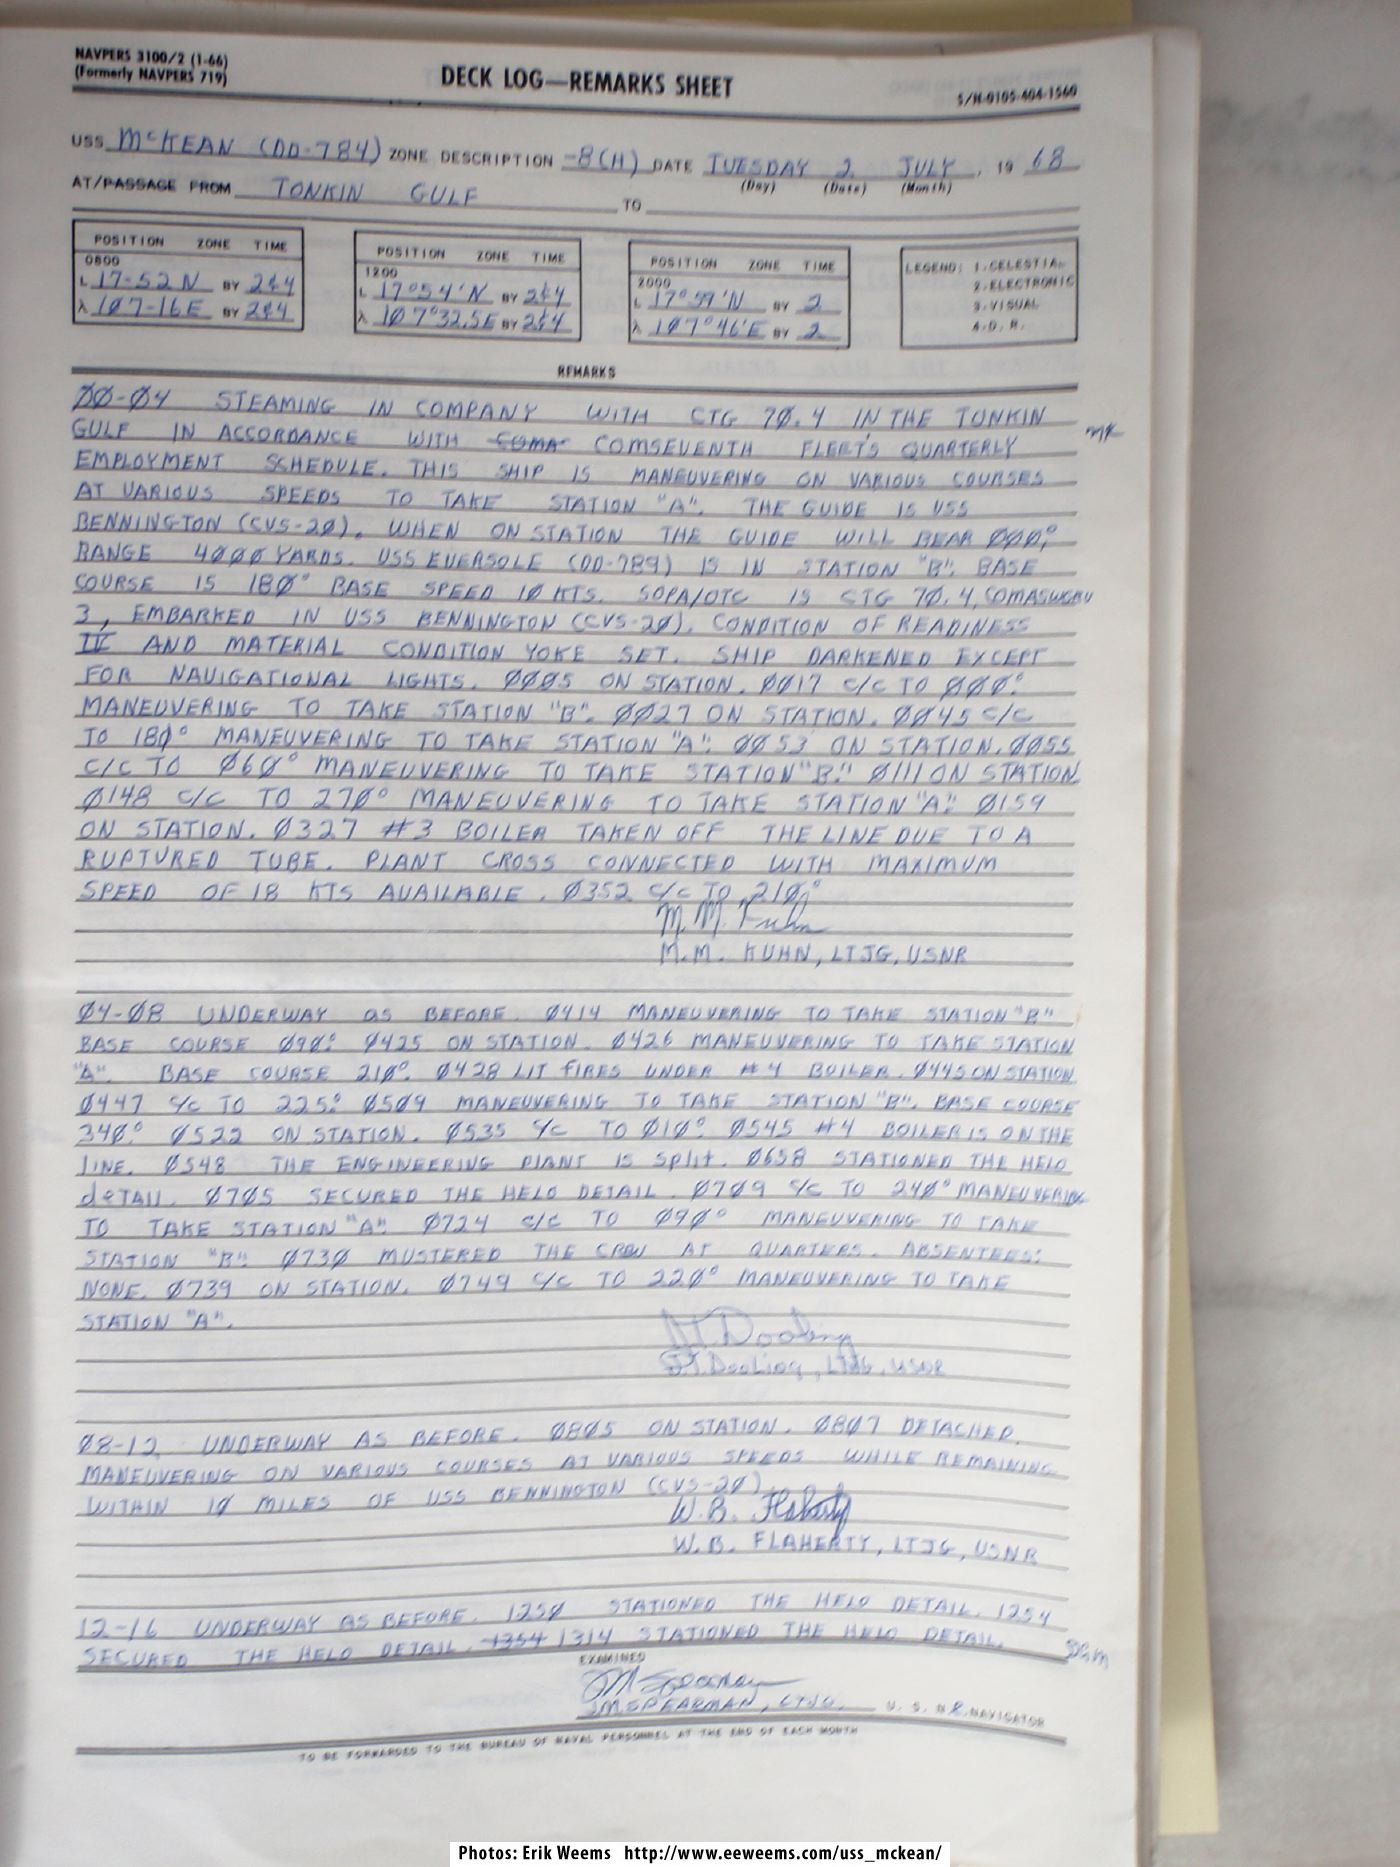 NAVPERS 3100/2 (1-66)
(Formerly NAVPERS 719)
DECK LOG—REMARKS SHEET
S/N-0105-404-1560
USS McKEAN (DD-784) ZONE DESCRIPTION -8(H) DATE TUESDAY 2 JULY, 19 68
(Day) (Date) (Month)
AT/PASSAGE FROM TONKIN GULF TO
POSITION ZONE TIME
0800
L 17-52 N BY 2&4
λ 107-16E BY 2&4
POSITION ZONE TIME
1200
L 17°54'N BY 2&4
λ 107°32.5E BY 2&4
POSITION ZONE TIME
2000
L 17°59'N BY 2
λ 107°46'E BY 2
LEGEND: 1.CELESTIAL
2.ELECTRONIC
3.VISUAL
4.D.R.
REMARKS
00-04 STEAMING IN COMPANY WITH CTG 70.4 IN THE TONKIN
GULF IN ACCORDANCE WITH COMSEVENTH FLEET'S QUARTERLY
MK
EMPLOYMENT SCHEDULE. THIS SHIP IS MANEUVERING ON VARIOUS COURSES
AT VARIOUS SPEEDS TO TAKE STATION "A". THE GUIDE IS USS
BENNINGTON (CVS-20). WHEN ON STATION THE GUIDE WILL BEAR 000°,
RANGE 4000 YARDS. USS EVERSOLE (DD-789) IS IN STATION "B". BASE
COURSE IS 180° BASE SPEED 10 KTS. SOPA/OTC IS CTG 70.4, COMASWGRU
3, EMBARKED IN USS BENNINGTON (CVS-20). CONDITION OF READINESS
IV AND MATERIAL CONDITION YOKE SET. SHIP DARKENED EXCEPT
FOR NAVIGATIONAL LIGHTS. 0005 ON STATION. 0017 C/C TO 000°.
MANEUVERING TO TAKE STATION "B". 0027 ON STATION. 0045 C/C
TO 180° MANEUVERING TO TAKE STATION "A". 0053 ON STATION. 0055
C/C TO 060° MANEUVERING TO TAKE STATION "B." 0111 ON STATION
0148 C/C TO 270° MANEUVERING TO TAKE STATION "A". 0159
ON STATION. 0327 #3 BOILER TAKEN OFF THE LINE DUE TO A
RUPTURED TUBE. PLANT CROSS CONNECTED WITH MAXIMUM
SPEED OF 18 KTS AVAILABLE. 0352 C/C TO 210°
M. M. Kuhn
M.M. KUHN, LTJG, USNR
04-08 UNDERWAY as BEFORE. 0414 MANEUVERING TO TAKE STATION "B"
BASE COURSE 090°. 0425 ON STATION. 0426 MANEUVERING TO TAKE STATION
"A". BASE COURSE 210°. 0428 LIT FIRES UNDER #4 BOILER. 0445 ON STATION
0447 C/C TO 225°. 0509 MANEUVERING TO TAKE STATION "B". BASE COURSE
340°. 0522 ON STATION. 0535 C/C TO 010°. 0545 #4 BOILER IS ON THE
LINE. 0548 THE ENGINEERING PLANT IS Split. 0658 STATIONED THE HELO
deTAIL. 0705 SECURED THE HELO DETAIL. 0709 C/C TO 240° MANEUVERING
TO TAKE STATION "A". 0724 C/C TO 090° MANEUVERING TO TAKE
STATION "B". 0730 MUSTERED THE CREW AT QUARTERS. ABSENTEES:
NONE. 0739 ON STATION. 0749 C/C TO 220° MANEUVERING TO TAKE
STATION "A".
Dooling
Dooling, LTJG, USNR
08-12 UNDERWAY AS BEFORE. 0805 ON STATION. 0807 DETACHED.
MANEUVERING ON VARIOUS COURSES AT VARIOUS SPEEDS WHILE REMAINING
WITHIN 10 MILES OF USS BENNINGTON (CVS-20)
W. B. Flaherty
W.B. FLAHERTY, LTJG, USNR
12-16 UNDERWAY AS BEFORE. 1250 STATIONED THE HELO DETAIL. 1254
SECURED THE HELO DETAIL. 1354 1314 STATIONED THE HELO DETAIL.
EXAMINED
JM Spearman
JM SPEARMAN, LTJG, U. S. N R. NAVIGATOR
TO BE FORWARDED TO THE BUREAU OF NAVAL PERSONNEL AT THE END OF EACH MONTH
Photos: Erik Weems http://www.eeweems.com/uss_mckean/